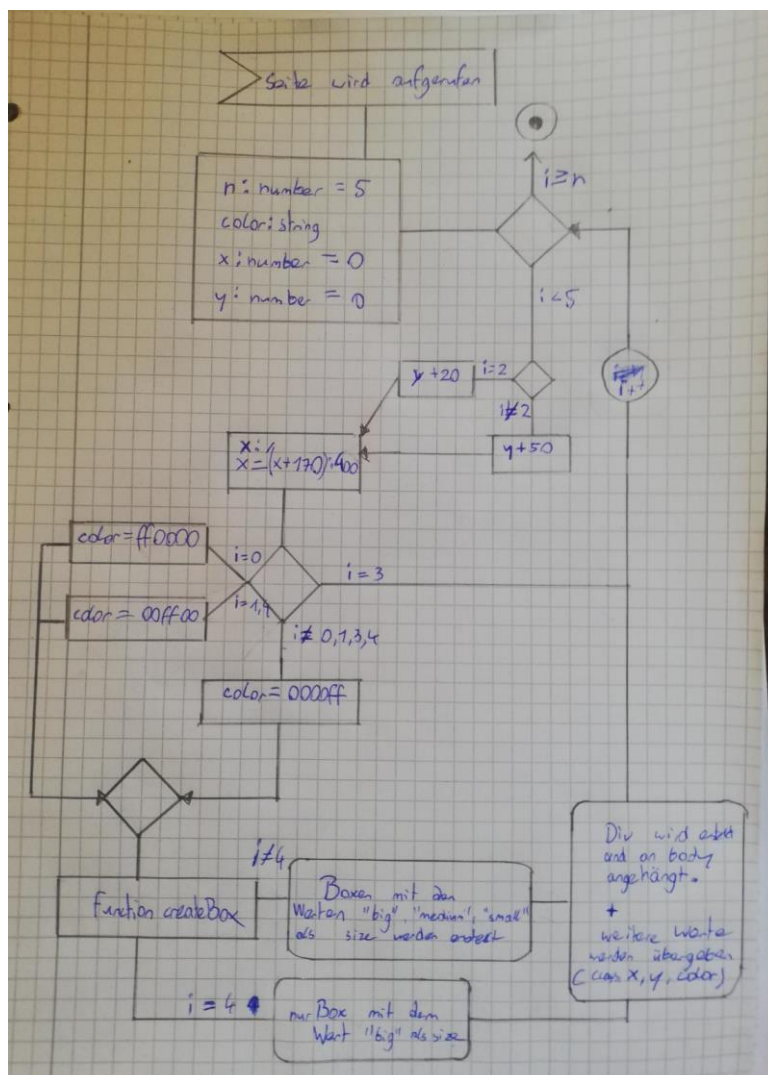 Seite wird aufgerufen
n: number = 5
color: string
x: number = 0
y: number = 0
i≥n
i<5
y+20
i=2
i≠2
i++
y+50
x:
x=(x+170) 400
color=ff0000
i=0
i=3
color= 00ff00
i=1,4
i≠ 0,1,3,4
color= 0000ff
i≠4
function createBox
Boxen mit den
Werten "big", "medium", "small"
als size werden erstellt
Div wird erstellt
und an body
angehängt.
+
weitere Werte
werden übergeben
( x, y, color)
i = 4
nur Box mit dem
Wert "big" als size